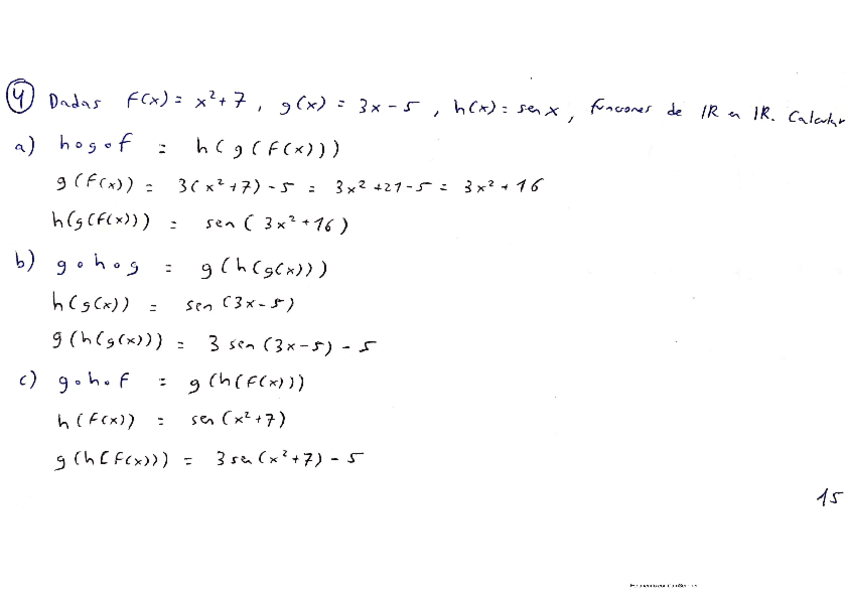 ④ Dadas f(x) = x²+7, g(x) = 3x-5, h(x) = sen x, funciones de IR en IR. Calcular
a) h∘g∘f = h(g(f(x)))
g(f(x)) = 3(x²+7)-5 = 3x²+21-5 = 3x²+16
h(g(f(x))) = sen(3x²+16)
b) g∘h∘g = g(h(g(x)))
h(g(x)) = sen(3x-5)
g(h(g(x))) = 3 sen(3x-5)-5
c) g∘h∘f = g(h(f(x)))
h(f(x)) = sen(x²+7)
g(h(f(x))) = 3 sen(x²+7)-5
15